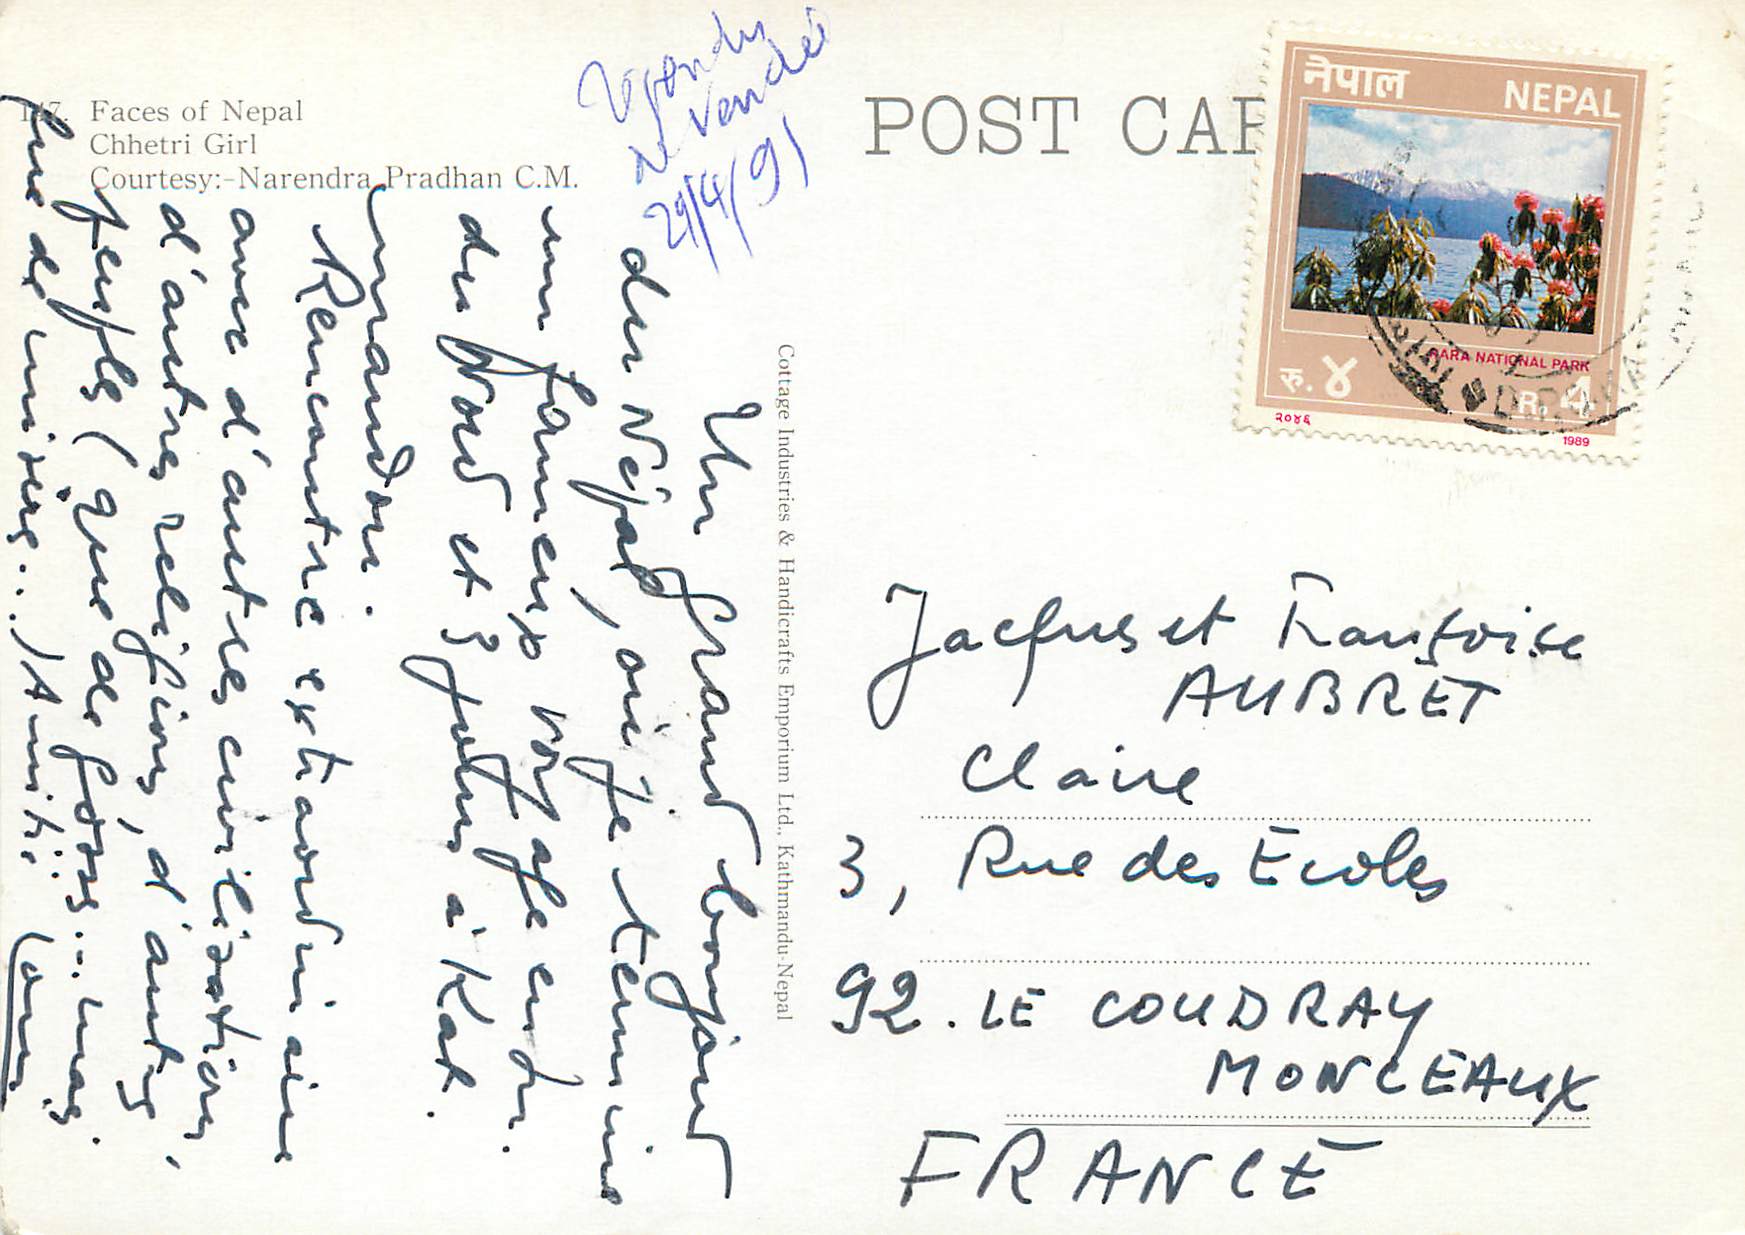 147. Faces of Nepal
Chhetri Girl
Courtesy:-Narendra Pradhan C.M.
29/4/91
POST CAR
नेपाल
NEPAL
RARA NATIONAL PARK
रु. ४
R. 4
२०४६
1989
Cottage Industries & Handicrafts Emporium Ltd., Kathmandu-Nepal
Un grand bonjour
du Népal, où je termine
un fameux voyage en In.
du Nord et 3 jours à Kat.
mandou.
Rencontre extraordinaire
avec d'autres civilisations,
d'autres religions, d'autres
peuples (que de gosses... mais
que de misère...) Amitié
Jacques et Françoise
AUBRET
Claire
3, Rue des Ecoles
92. LE COUDRAY
MONCEAUX
FRANCE